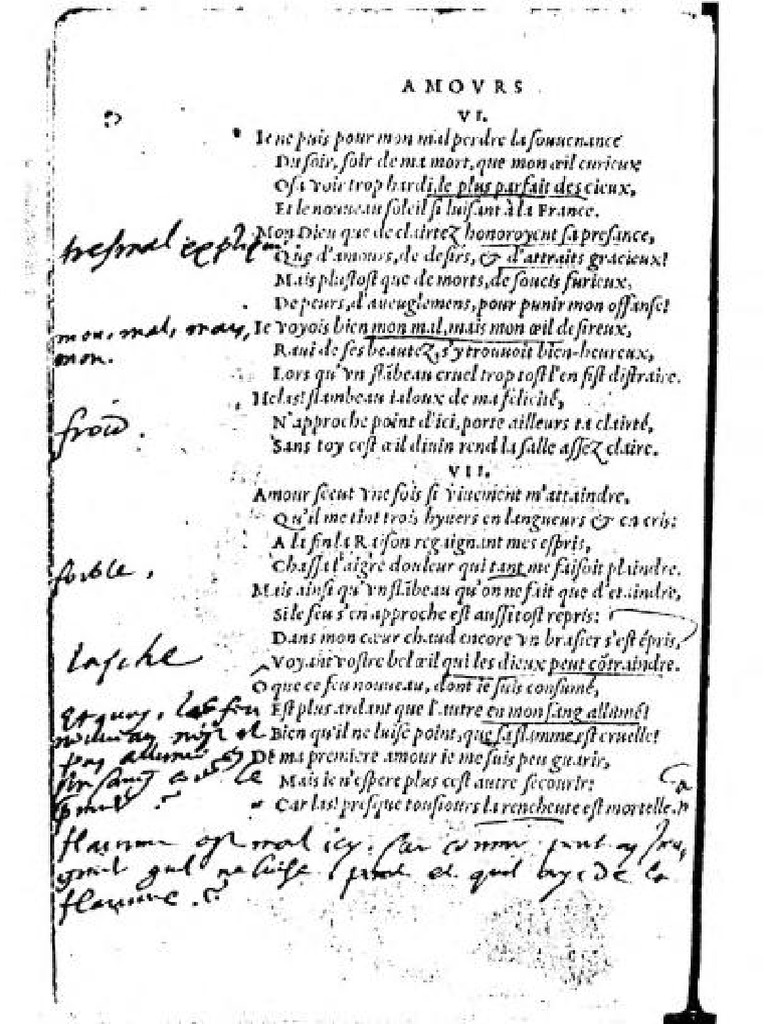 AMOVRS
VI.
Ie ne puis pour mon mal perdre la souuenance
Du soir, soir de ma mort, que mon œil curieux
Osa voir trop hardi, le plus parfait des cieux,
Et le nouueau soleil si luisant à la France.
tresmal expliqué
Mon Dieu que de clairtez honoroyent sa presance,
Que d'amours, de desirs, & d'attraits gracieux!
Mais plustost que de morts, de soucis furieux,
De peurs, d'aueuglemens, pour punir mon offanse!
mon, mal, mais,
mon.
Ie voyois bien mon mal, mais mon œil desireux,
Raui de ses beautez, s'y trouuoit bien-heureux,
Lors qu'vn flãbeau cruel trop tost l'en fist distraire.
Helas! flambeau ialoux de ma felicité,
froid.
N'approche point d'ici, porte ailleurs ta clairté,
Sans toy cest œil diuin rend la salle assez claire.
VII.
Amour sceut vne fois si viuement m'attaindre,
Qu'il me tint trois hyuers en langueurs & en cris:
A la fin la Raison regaignant mes espris,
foible.
Chassa l'aigre douleur qui tant me faisoit plaindre.
Mais ainsi qu'vn flãbeau qu'on ne fait que d'etaindre,
Si le feu s'en approche est aussi tost repris:
Dans mon cœur chaud encore vn brasier s'est épris,
lasche
Voyant vostre bel œil qui les dieux peut cõtraindre.
O que ce feu nouueau, dont ie suis consumé,
Et quoy, le feu
Est plus ardant que l'autre en mon sang allumé!
nouueau n'est il
Bien qu'il ne luise point, que sa flamme est cruelle!
pas allumé
De ma premiere amour ie me suis peu guarir,
Mais ie n'espere plus cest autre secourir:
Car las! presque tousiours la rencheute est mortelle.
flamme est mal icy. Car comme peut on
qu'il ne luise point et qu'il de la
flamme.